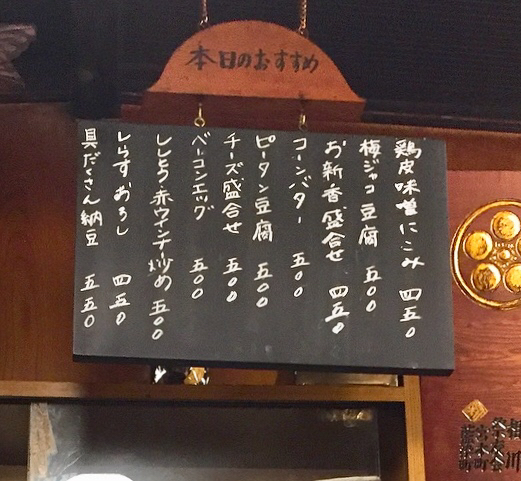 本日のおすすめ
鶏皮味噌にこみ 四五0
梅ジャコ豆腐 五00
お新香盛合せ 四五0
コーンバター 五00
ピータン豆腐 五00
チーズ盛合せ 五00
ベーコンエッグ 五00
ししとう赤ウインナ炒め 五00
しらすおろし 四五0
具だくさん納豆 五五0